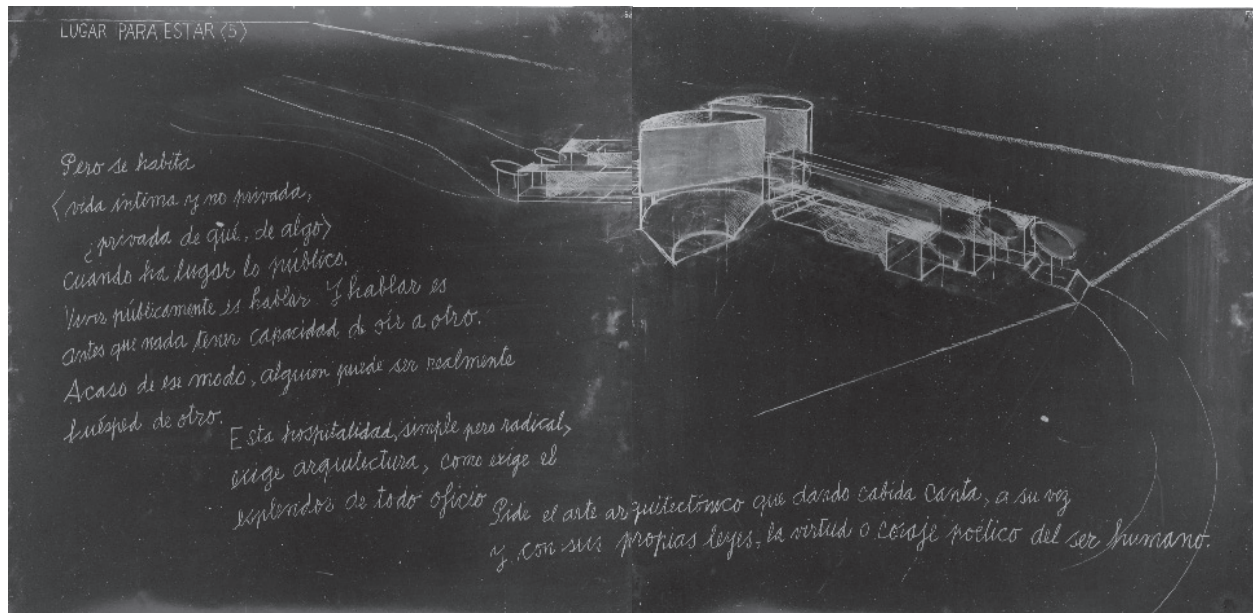 LUGAR PARA ESTAR ⟨5⟩
Pero se habita
⟨vida íntima y no privada,
¿privada de qué, de algo⟩
cuando ha lugar lo público.
Vivir públicamente es hablar. Y hablar es
antes que nada tener capacidad de oír a otro.
Acaso de ese modo, alguien puede ser realmente
huésped de otro.
Esta hospitalidad, simple pero radical,
exige arquitectura, como exige el
esplendor de todo oficio
Pide el arte arquitectónico que dando cabida canta, a su vez
y, con sus propias leyes, la virtud o coraje poético del ser humano.